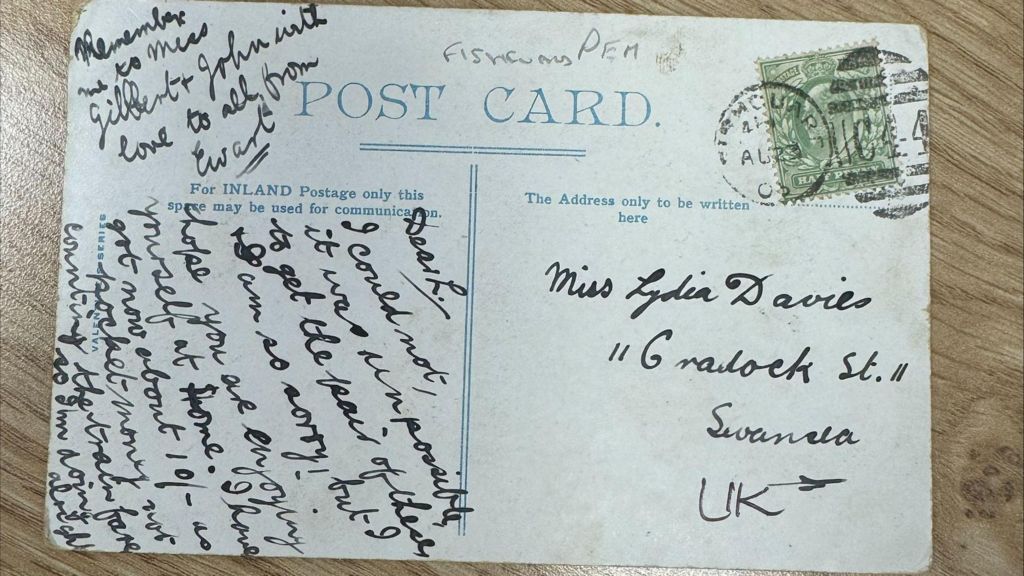 Remember
me to Miss
Gilbert + John with
love to all, from
Ewart
PEM
POST CARD.
For INLAND Postage only this
space may be used for communication.
The Address only to be written
here
VALEN SERIES
Dear L.
I could not,
it was un possible,
to get the pair of these
but I
+ I am so sorry!
hope you are enjoying
yourself at home. I have
got now about 10/- as
pocket-money not
counting the train fare
so I'm doing
alright
AU
Miss Lydia Davies
11 Cradock St.
Swansea
UK